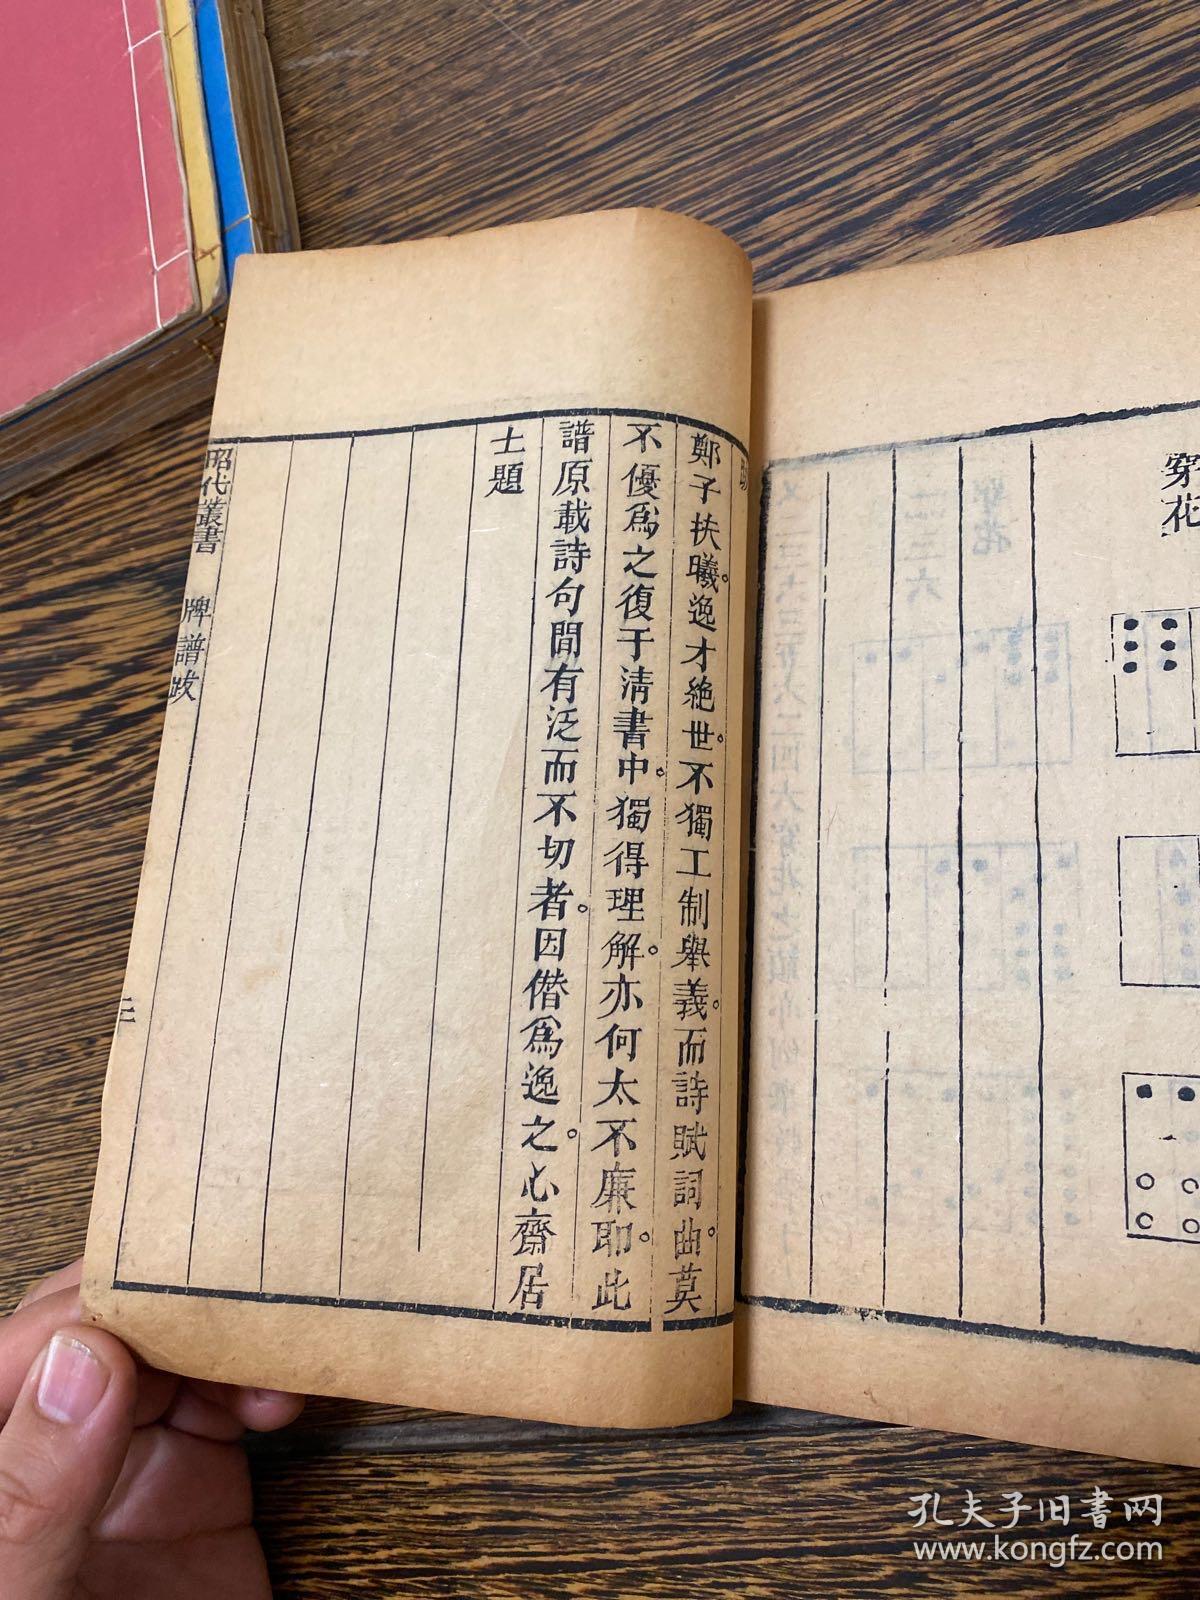 穿花
跋
鄭子扶曦。逸才絶世。不獨工制舉義。而詩賦詞曲。莫
不優爲之復于淸書中。獨得理解。亦何太不廉耶。此
譜原載詩句閒有泛而不切者。因僭爲逸之。心齋居
士題
昭代叢書 牌譜跋 二
孔夫子旧书网
www.kongfz.com